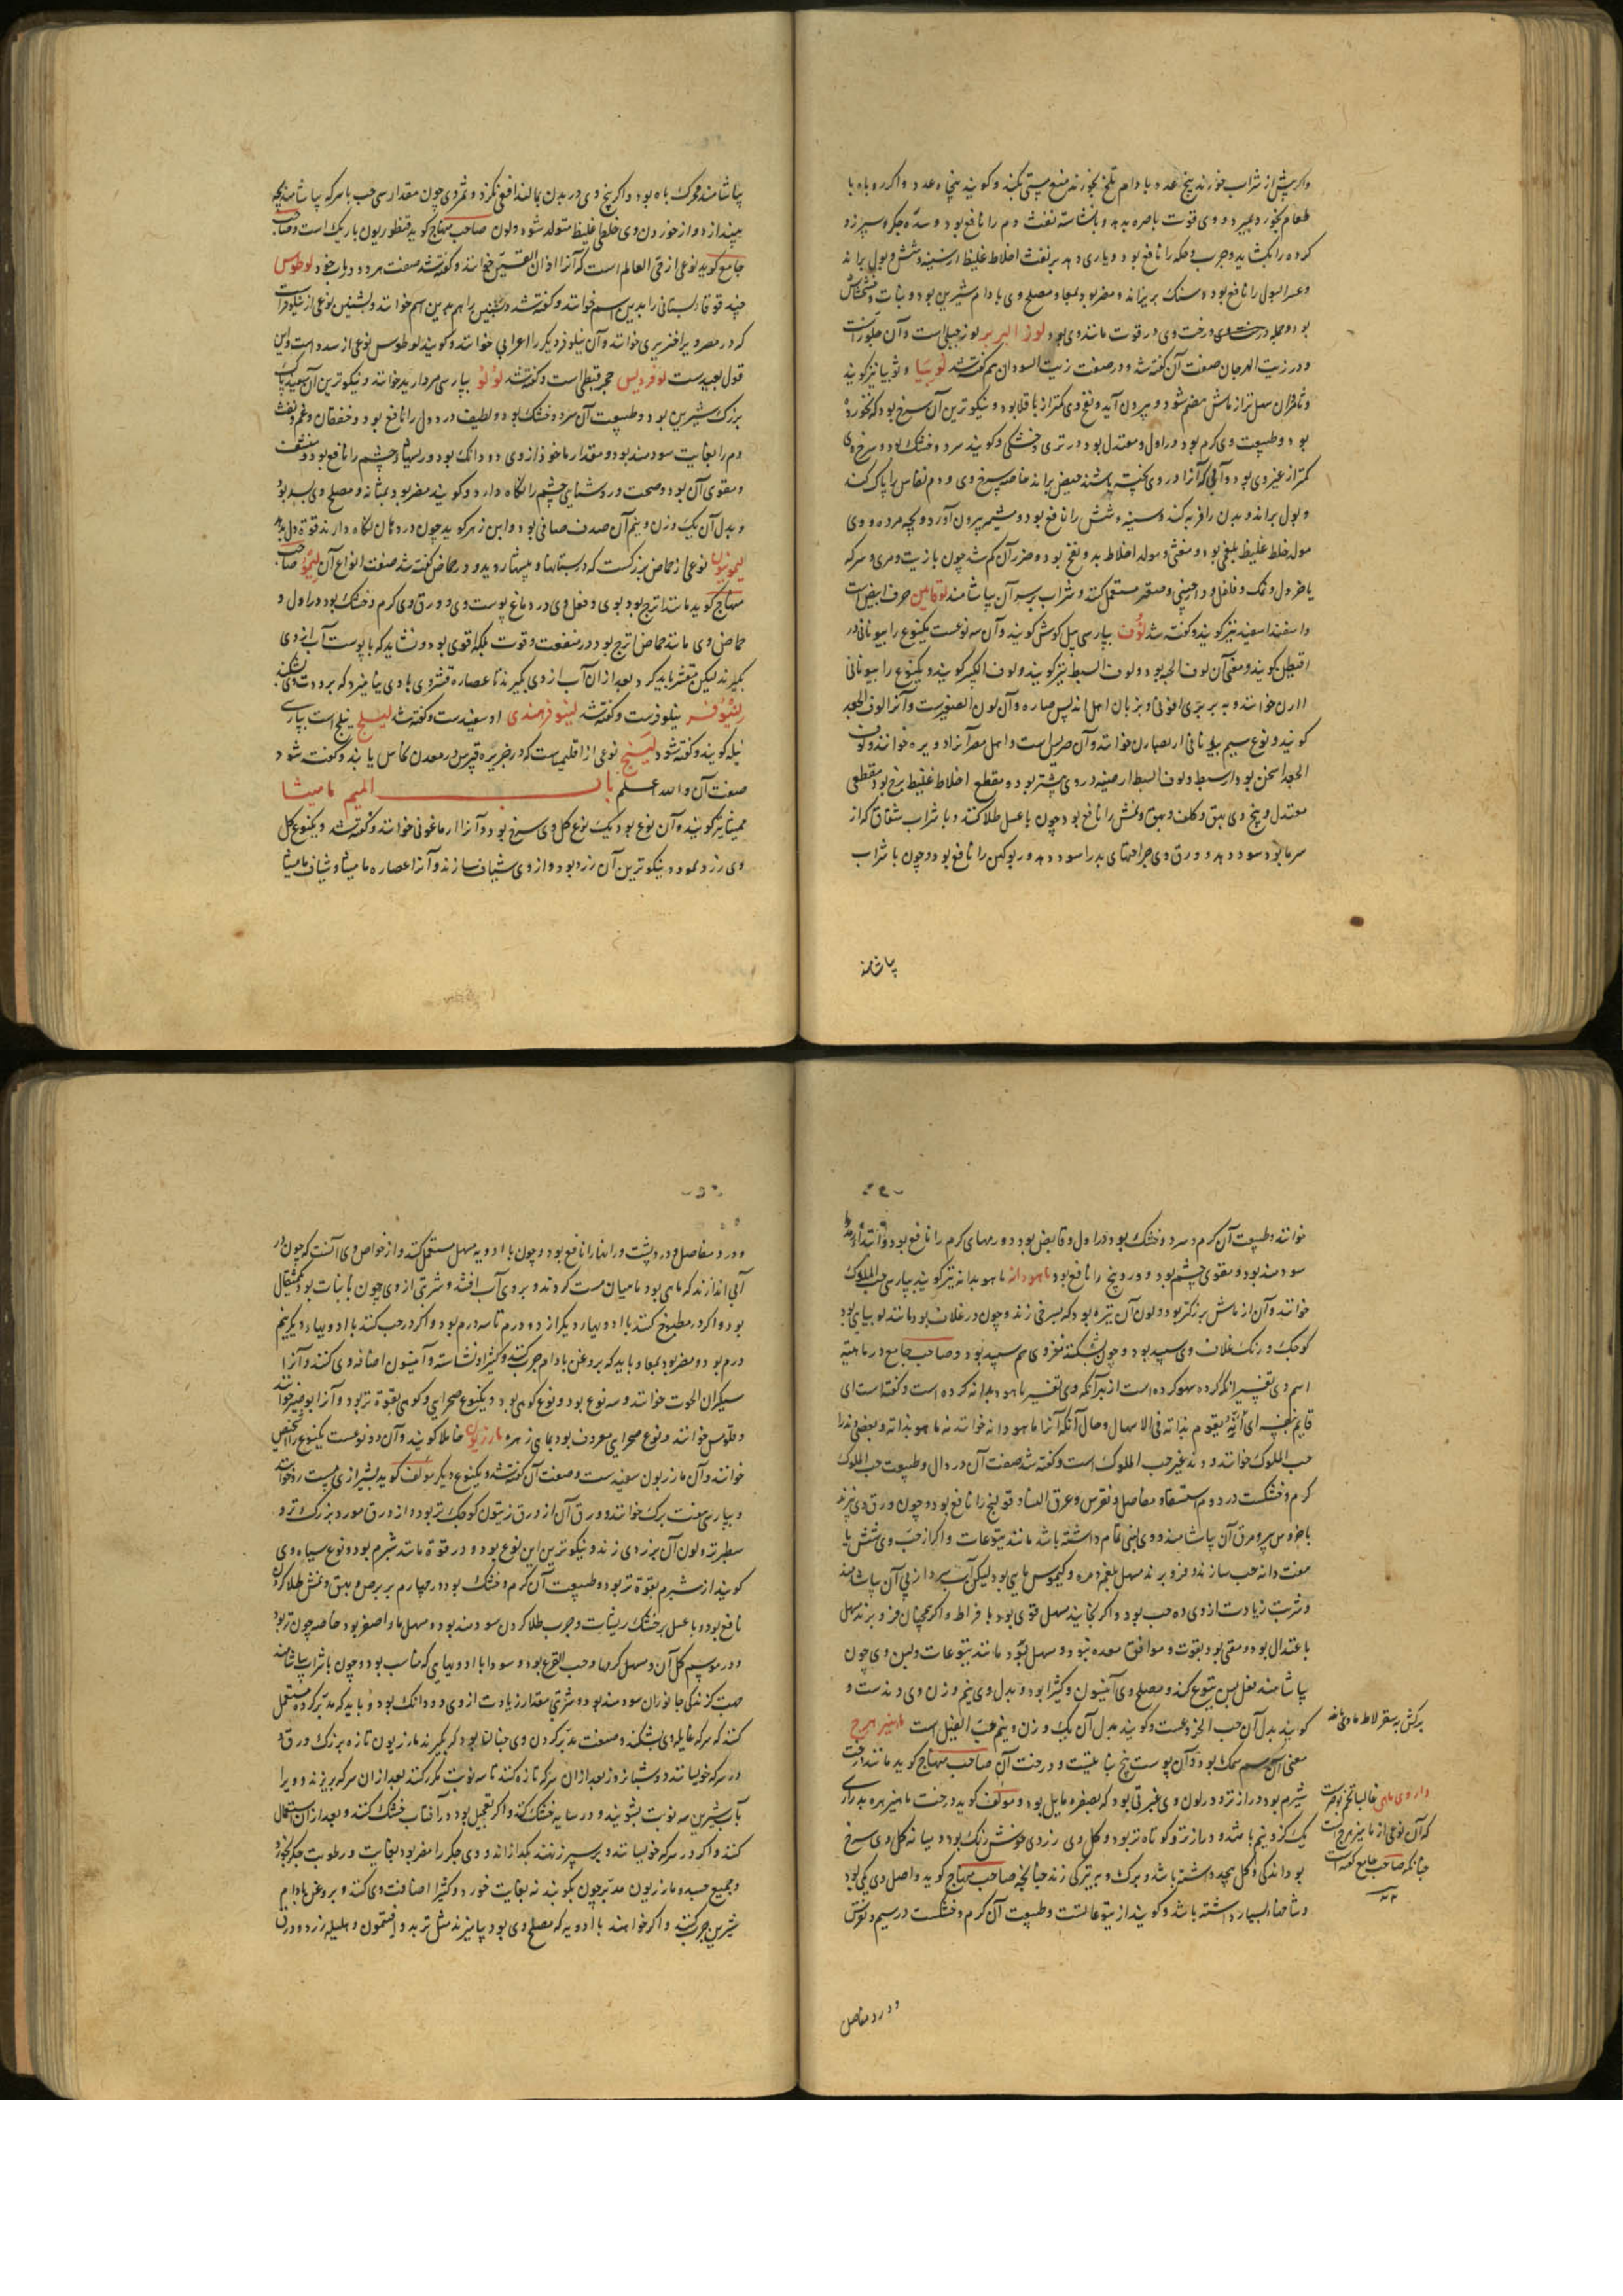 واگر پیش از شراب خورند پنج عدد بادام تلخ بخورند منع مستی بکند و گویند پنجاه عدد و اگر روباه با
طعام بخورد بمیرد و وی قوت باصره بدهد و با نشاسته نفث دم را نافع بود و سده جگر و سپرز و
گرده را بگشاید و جرب و حکه را نافع بود و یاری دهد بر نفث اخلاط غلیظ از سینه و شش و بول براند
و عسر البول را نافع بود و سنگ بریزاند و مضر بود بمعا و مصلح وی بادام شیرین بود و نبات و خشخاش
بود و صمغ درخت وی در قوت مانند وی بود لوز البربر لوز جبلی است و آن جلوز است
و در زیت الهرجان صفت آن گفته شد و در صفت زیت السودان هم گفته شد لوبیا و لوبیا نیز گویند
بود و طبیعت وی گرم بود در اول و معتدل بود در تری و خشکی و گویند سرد و خشک بود و سرخ وی
و بول براند و بدن را فربه کند و سینه و شش را نافع بود و شیمه بیرون آورد و بچه مرده و وی
مولد خلط غلیظ بلغمی بود و مغثی و مولد اخلاط بد و نفخ بود و ضرر آن کم شد چون با زیت و مری و سرکه
یا خردل و نمک و فلفل و دارچینی و صعتر مستعمل کنند و شراب بر سر آن بیاشامند لوقاین حرف ابیض است
و اسفند اسفید نیز گویند و گفته شد لوف بپارسی پیل گوش گویند و آن سه نوعست یکنوع را بیونانی در
اقیطن گویند و معنی آن لوف الحیه بود و لوف السبط نیز گویند و لوف الکبیر گویند و یکنوع را بیونانی
ارن خوانند و به بربری ایرنی و بزبان اهل اندلس صاره و آن لوف الصغیر است و آنرا لوف الجعد
الجعد اسخن بود از سبط و لوف السبط ارضیه در وی بیشتر بود و مقطع اخلاط غلیظ لزج بود مقطعی
معتدل و بیخ وی بهق و کلف و بهق و نمش را نافع بود چون با عسل طلا کنند و با شراب شقاق که از
سرما بود سود دهد و ورق وی جراحتهای بد را سود دهد و ربو کهن را نافع بود و چون با شراب
بیاشامند
بیاشامند محرک باه بود و اگر بیخ وی در بدن بمالند افعی نگزد و ثمر وی چون مقدار سی حب با سرکه بیاشامند بچه
بیندازد و از خوردن وی خلطی غلیظ متولد شود ولون صاحب منهاج گوید قنطوریون باریک است و صاحب
جامع گوید نوعی از حی العالم است که آنرا اذان القسیس خوانند و گفته شد صفت هر دو در باب خود لوطوس
که در مصر و را خنزیری خوانند و آن نیلوفر دیگر را اعرابی خوانند و گویند لوطوس نوعی از سدر است و این
قول بعید است لوفردیس حجر قبطی است و گفته شد لؤلؤ بپارسی مروارید خوانند و نیکوترین آن سفید پاک
بزرگ شیرین بود و طبیعت آن سرد و خشک بود و لطیف درد دل را نافع بود و خفقان و غم و نفث
دم را بغایت سودمند بود و مقدار ماخوذ از وی دو دانگ بود و در اسهال و چشم را نافع بود و منشف
و مقوی آن بود و صحت و روشنایی چشم را نگاه دارد و گویند مضر بود بمثانه و مصلح وی بسد بود
و بدل آن یک وزن و نیم آن صدف صافی بود و ابن زهر گوید چون در دهان نگاه دارند قوت دل بدهد
لیمونیون نوعی از حماض بزرگست که در بستانها و بیشها روید و در حماض گفته شد صفت انواع آن لیمو صاحب
منهاج گوید مانند اترج بود بوی و فعل وی در دماغ پوست وی و ورق وی گرم و خشک بود در اول و
حماض وی مانند حماض اترج بود در منفعت و قوت بلکه اقوی بود و نشاید که با پوست آب از وی
بگیرند لیکن مقشر باید کرد و بعد از آن آب از وی بگیرند تا عصاره قشر وی با وی نیامیزد که برودت وی بشکند
لینوفر نیلوفرست و گفته شد لینوفر هندی اوسفیدست و گفته شد لیلج نیلج است بپارسی
نیله گویند و گفته شود لینج نوعی از اقلیمیاست که در جزیره قبرس در معدن نحاس یابند و گفته شود
صفت آن والله اعلم باب المیم مامیثا
ممیثا نیز گویند و آن دو نوع بود یک نوع گل وی سرخ بود و آنرا ارماغونی خوانند و گفته شد و یکنوع گل
وی زرد بود و نیکوترین آن زرد بود و از وی شیاف سازند و آنرا عصاره مامیثا و شیاف مامیثا
خوانند و طبیعت آن گرم و سرد و خشک بود در اول و قابض بود و ورمهای گرم را نافع بود و در ابتداء رمد
سودمند بود و مقوی چشم بود و ورد ینج را نافع بود ماهودانه ماهوبدانه نیز گویند بپارسی حب الملوک
خوانند و آن از ماش بزرگتر بود و لون آن تیره بود که بسرخی زند و چون در غلاف بود مانند لوبیای بود
کوچک و رنگ غلاف وی سپید بود و چون بشکنند مغز وی هم سپید بود و صاحب جامع در ماهیة
اسم وی تفسیر آنکه کرده سهو کرده است از بهر آنکه وی تفسیر ماهوبدانه کرده است و گفته است ای
قایم بنفسه ای انه یقوم بذاته فی الاسهال و حال آنکه آنرا ماهودانه خوانند نه ماهوبدانه و بعضی دند را
حب الملوک خوانند و دند غیر حب الملوک است و گفته شد صفت آن در دال و طبیعت حب الملوک
گرم و خشکست در دوم استسقا و مفاصل و نقرس و عرق النسا و قولنج را نافع بود و چون ورق وی بپزند
با خروس پیر و مرق آن بیاشامند و وی لبنی تمام داشته باشد مانند یتوعات و اگر از حب وی شش یا
هفت دانه حب سازند و فرو برند مسهل بلغم و مره و کیموس مایی بود لیکن آب سرد از پی آن بیاشامند
و شربت زیادت از وی ده حب بود و اگر بخایند مسهل قوی بود با فراط و اگر همچنان فرو برند مسهل
باعتدال بود و مقی بود بقوت و موافق معده نبود و مسهل قوی بود مانند یتوعات و لبن وی چون
بیاشامند فعل لبن یتوع کند و مصلح وی آنیسون و کثیرا بود و بدل وی نیم وزن وی دندست و
گویند بدل آن حب الخروعست و گویند بدل آن یک وزن و نیم حب النیل است ماهیزهرج
معنی آن سم سمک بود و آن پوست بیخ نباتیست و درخت آن صاحب منهاج گوید مانند درخت
شبرم بود و درازتر و در لون وی غبرتی بود که بصفره مایل بود و مؤلف گوید درخت ماهیزهره بدرازی
یک گز و نیم باشد و درازتر و کوتاه تر بود و گل وی زردی خوش رنگ بود و میانه گل وی سرخ
بود اندکی و گل بچه داشته باشد و برگ وی بترکی زند چنانچه صاحب منهاج گوید و اصل وی یکی بود
و شاخهای بسیار داشته باشد و گویند از یتوعاتست و طبیعت آن گرم و خشکست در سیم و نقرس
داروی ماهی غالبا تخم بوصیرست
که آن نوعی از ماهیزهرج است
چنانکه صاحب جامع گفته است
و درد مفاصل
و درد مفاصل و درد پشت و رانها را نافع بود و چون با ادویه مسهل مستعمل کنند و از خواص وی آنست که چون در
آبی اندازند که ماهی بود ماهیان مست گردند و بر روی آب افتند و شربتی از وی چون با نبات بود یکمثقال
بود و اگر در مطبوخ کنند با ادویهای دیگر از دو درم تا سه درم بود و اگر در حب کنند با ادویهای دیگر نیم
درم بود و مضر بود بمعا و باید که بروغن بادام چرب کنند و کثیرا و نشاسته و آنیسون اضافه وی کنند و آنرا
سیکران الحوت خوانند و سه نوع بود و نوع کوهی بود و یکنوع صحرایی و کوهی بقوة تر بود و آنرا بوصیر خوانند
و فلومس خوانند و نوع صحرایی معروف بود بماهی زهره مازریون خاملا گویند و آن دو نوعست یکنوع را اشخیص
خوانند و آن مازریون سفیدست و صفت آن گفته شد و یکنوع دیگر مؤلف گوید بشیرازی هست رو خوانند
و بپارسی هفت برگ خوانند و ورق آن از ورق زیتون کوچک تر بود و از ورق مورد بزرگ تر و
سطبرتر و لون آن بزردی زند و نیکوترین این نوع بود و در قوة مانند شبرم بود و نوع سیاه وی
گویند از شبرم بقوة تر بود و طبیعت آن گرم و خشک بود در چهارم بر برص و بهق و نمش طلا کردن
نافع بود و با عسل بر خشک ریشات و جرب طلا کردن سودمند بود و مسهل ماء اصفر بود خاصه چون تر بود
و در موسم گل آن و مسهل کرمها و حب القرع بود و سودا با ادویهایی که مناسب بود و چون با شراب بیاشامند
جهت گزندگی جانوران سودمند بود و شربتی مقدار زیادت از وی دو دانگ بود و باید که مدبر کرده مستعمل
کنند که سرکه غایله وی بشکند و صفت مدبر کردن وی چنان بود که بگیرند مازریون تازه بزرگ ورق و
در سرکه خویسانند دو شبانروز بعد از آن سرکه تازه کنند تا سه نوبت مکرر کنند بعد از آن سرکه بریزند و ویرا
بآب شیرین سه نوبت بشویند و در سایه خشک کنند و اگر تعجیل بود در آفتاب خشک کنند و بعد از آن استعمال
کنند و اگر در سرکه خویسانند و بر سپرز نهند بگدازاند و وی جگر را مضر بود بغایت و رطوبت جگر بخورد
و جمیع جسد و مازریون مدبر چون بکوبند نه بغایت خورد و کثیرا اضافت وی کنند و بروغن بادام
شیرین چرب کنند و اگر خواهند با ادویه که مصلح وی بود بیامیزند مثل تربد و افتیمون و هلیله زرد و ورق